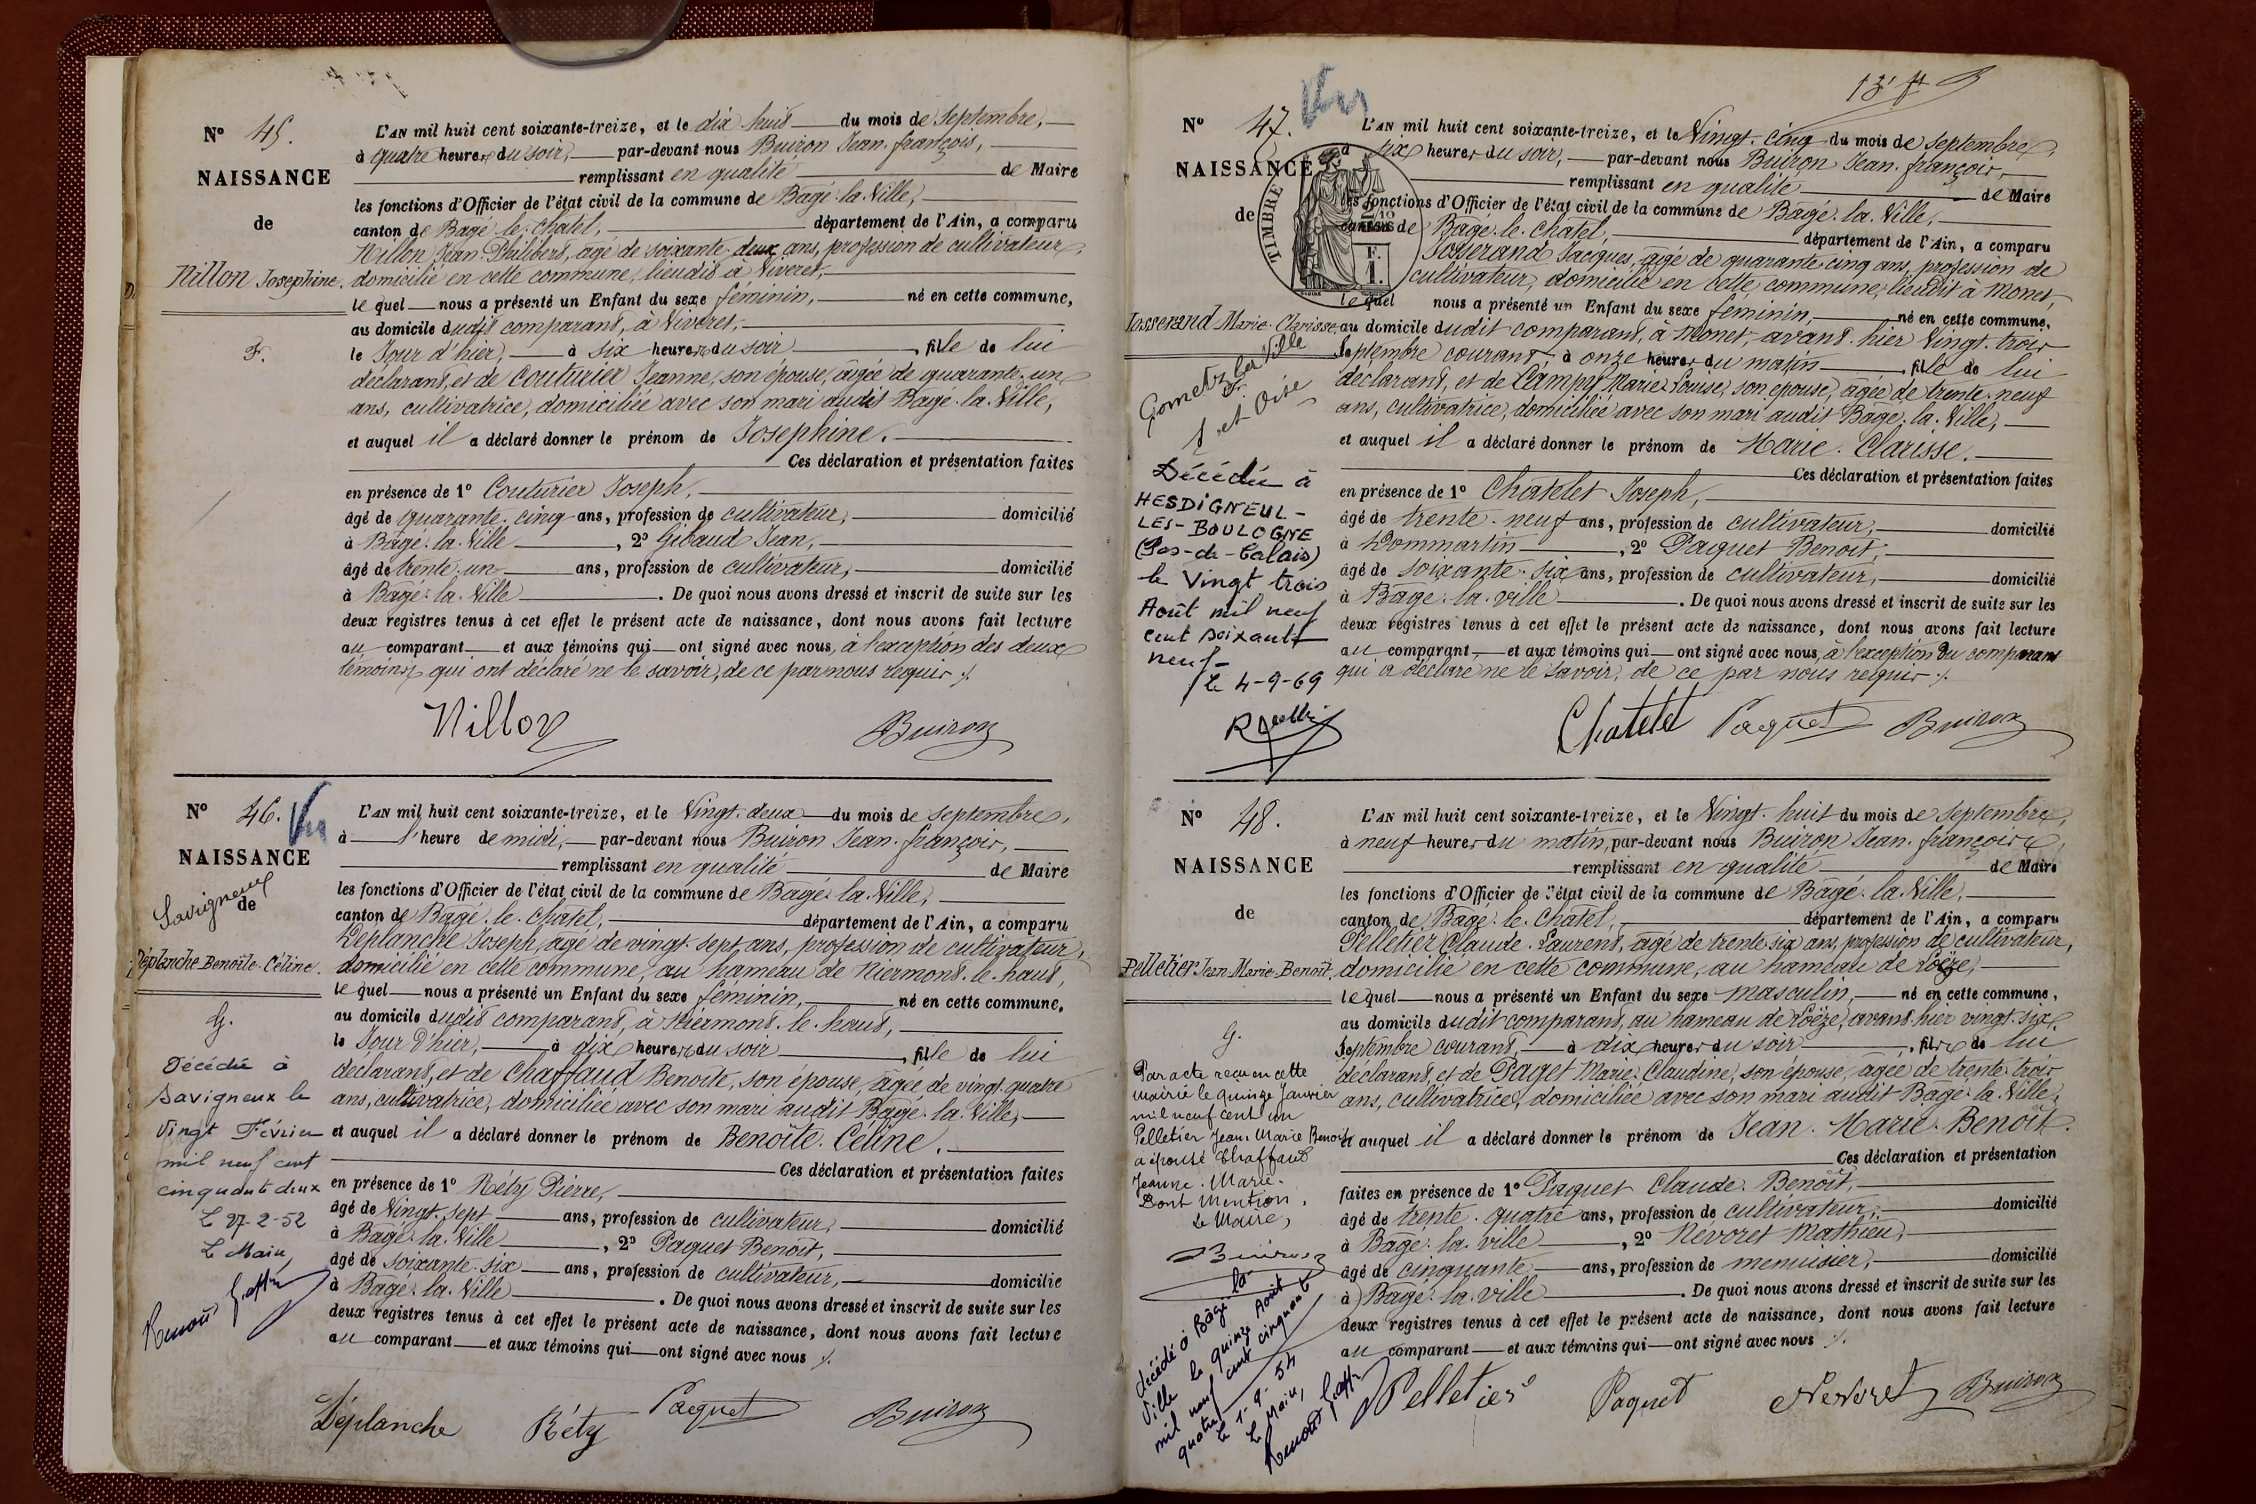 N° 45.
NAISSANCE
de
Nillon Josephine.
F.
L'AN mil huit cent soixante-treize, et le dix huit du mois de Septembre,
à quatre heures du soir, par-devant nous Buiron Jean-françois,
remplissant en qualité de Maire
les fonctions d'Officier de l'état civil de la commune de Bâgé-la-Ville,
canton de Bâgé-le-Chatel, département de l'Ain, a comparu
Nillon Jean-Philibert, âgé de soixante-deux ans, profession de cultivateur,
domicilié en cette commune, lieudit à Viveret,
le quel nous a présenté un Enfant du sexe féminin, né en cette commune,
au domicile dudit comparant, à Viveret,
le Jour d'hier, à six heures du soir, fille de lui
déclarant, et de Couturier Jeanne, son épouse, âgée de quarante-un
ans, cultivatrice, domiciliée avec son mari audit Bâgé-la-Ville,
et auquel il a déclaré donner le prénom de Josephine.
Ces déclaration et présentation faites
en présence de 1° Couturier Joseph,
âgé de quarante-cinq ans, profession de cultivateur, domicilié
à Bâgé-la-Ville, 2° Gibaud Jean,
âgé de trente-un ans, profession de cultivateur, domicilié
à Bâgé-la-Ville. De quoi nous avons dressé et inscrit de suite sur les
deux registres tenus à cet effet le présent acte de naissance, dont nous avons fait lecture
au comparant et aux témoins qui ont signé avec nous, à l'exception des deux
témoins qui ont déclaré ne le savoir, de ce par nous requis.
Nillon Buiron
N° 46. Vu
NAISSANCE
Savigneux
de
Déplanche Benoîte-Céline.
G.
Décédée à
Savigneux le
Vingt Février
mil neuf cent
cinquante deux
Le 27-2-52
Le Maire,
L'AN mil huit cent soixante-treize, et le Vingt-deux du mois de Septembre,
à l'heure de midi, par-devant nous Buiron Jean-françois,
remplissant en qualité de Maire
les fonctions d'Officier de l'état civil de la commune de Bâgé-la-Ville,
canton de Bâgé-le-Chatel, département de l'Ain, a comparu
Déplanche Joseph, âgé de vingt-sept ans, profession de cultivateur,
domicilié en cette commune, au hameau de Niermont-le-haut,
le quel nous a présenté un Enfant du sexe féminin, né en cette commune,
au domicile dudit comparant, à Niermont-le-haut,
le Jour d'hier, à dix heures du soir, fille de lui
déclarant, et de Chaffaud Benoîte, son épouse, âgée de vingt-quatre
ans, cultivatrice, domiciliée avec son mari audit Bâgé-la-Ville,
et auquel il a déclaré donner le prénom de Benoîte-Céline.
Ces déclaration et présentation faites
en présence de 1° Réty Pierre,
âgé de Vingt-sept ans, profession de cultivateur, domicilié
à Bâgé-la-Ville, 2° Paquet Benoît,
âgé de soixante-six ans, profession de cultivateur, domicilié
à Bâgé-la-Ville. De quoi nous avons dressé et inscrit de suite sur les
deux registres tenus à cet effet le présent acte de naissance, dont nous avons fait lecture
au comparant et aux témoins qui ont signé avec nous.
Déplanche Réty Paquet Buiron
N° 47. Vu
NAISSANCE
de
TIMBRE
Josserand Marie-Clarisse.
F.
Gometz la Ville
S. et Oise
Décédée à
HESDIGNEUL-
LES-BOULOGNE
(Pas-de-Calais)
le Vingt trois
Août mil neuf
cent soixante
neuf-
Le 4-9-69
L'AN mil huit cent soixante-treize, et le Vingt-cinq du mois de Septembre,
à six heures du soir, par-devant nous Buiron Jean-françois,
remplissant en qualité de Maire
les fonctions d'Officier de l'état civil de la commune de Bâgé-la-Ville,
canton de Bâgé-le-Chatel, département de l'Ain, a comparu
Josserand Jacques, âgé de quarante-cinq ans, profession de
cultivateur, domicilié en cette commune, lieudit à Monet,
le quel nous a présenté un Enfant du sexe féminin, né en cette commune,
au domicile dudit comparant, à Monet, avant-hier Vingt-trois
Septembre courant, à onze heures du matin, fille de lui
déclarant, et de Campy Marie-Louise, son épouse, âgée de trente-neuf
ans, cultivatrice, domiciliée avec son mari audit Bâgé-la-Ville,
et auquel il a déclaré donner le prénom de Marie-Clarisse.
Ces déclaration et présentation faites
en présence de 1° Chatelet Joseph,
âgé de trente-neuf ans, profession de cultivateur, domicilié
à Dommartin, 2° Paquet Benoît,
âgé de soixante-six ans, profession de cultivateur, domicilié
à Bâgé-la-ville. De quoi nous avons dressé et inscrit de suite sur les
deux registres tenus à cet effet le présent acte de naissance, dont nous avons fait lecture
au comparant, et aux témoins qui ont signé avec nous, à l'exception du comparant
qui a déclaré ne le savoir, de ce par nous requis.
Chatelet Paquet Buiron
N° 48.
NAISSANCE
de
Pelletier Jean-Marie-Benoît.
G.
Par acte reçu en cette
mairie le quinze Janvier
mil neuf cent un
Pelletier Jean-Marie Benoît
a épousé Chaffaud
Jeanne-Marie.
Dont Mention.
Le Maire,
Buiron
décédé à Bâgé-la-
Ville le quinze Août
mil neuf cent cinquante
quatre
Le 1-9-54
Le Maire,
L'AN mil huit cent soixante-treize, et le Vingt-huit du mois de Septembre,
à neuf heures du matin, par-devant nous Buiron Jean-françois,
remplissant en qualité de Maire
les fonctions d'Officier de l'état civil de la commune de Bâgé-la-Ville,
canton de Bâgé-le-Chatel, département de l'Ain, a comparu
Pelletier Claude-Laurent, âgé de trente-six ans, profession de cultivateur,
domicilié en cette commune, au hameau de Loëze,
le quel nous a présenté un Enfant du sexe masculin, né en cette commune,
au domicile dudit comparant, au hameau de Loëze, avant-hier vingt-six
Septembre courant, à dix heures du soir, fils de lui
déclarant, et de Paget Marie-Claudine, son épouse, âgée de trente-trois
ans, cultivatrice, domiciliée avec son mari audit Bâgé-la-Ville,
et auquel il a déclaré donner le prénom de Jean-Marie-Benoît.
Ces déclaration et présentation
faites en présence de 1° Paquet Claude-Benoît,
âgé de trente-quatre ans, profession de cultivateur, domicilié
à Bâgé-la-ville, 2° Névoret Mathieu,
âgé de cinquante ans, profession de menuisier, domicilié
à Bâgé-la-ville. De quoi nous avons dressé et inscrit de suite sur les
deux registres tenus à cet effet le présent acte de naissance, dont nous avons fait lecture
au comparant et aux témoins qui ont signé avec nous.
Pelletier Paquet Nevoret Buiron